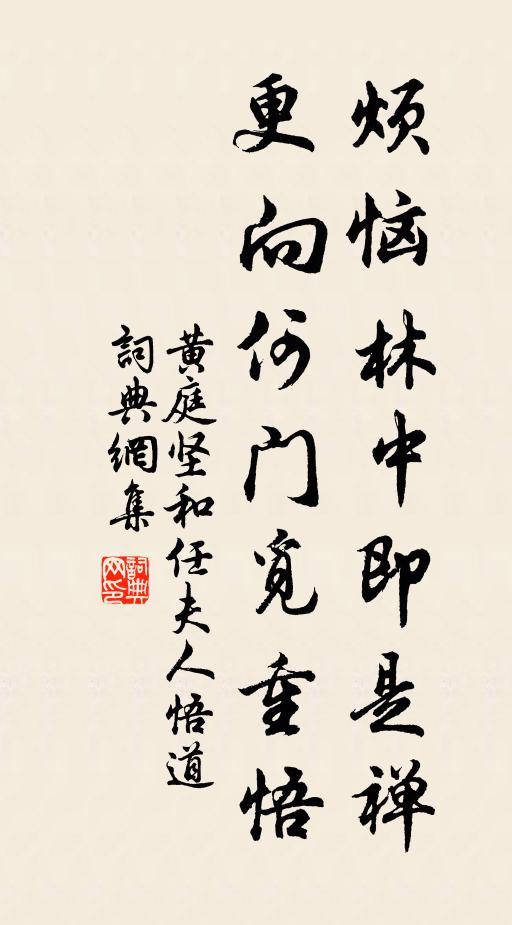 烦恼林中即是禅
更向何门觅重悟
黄庭坚和任夫人悟道
詞典網集
詞典
网印